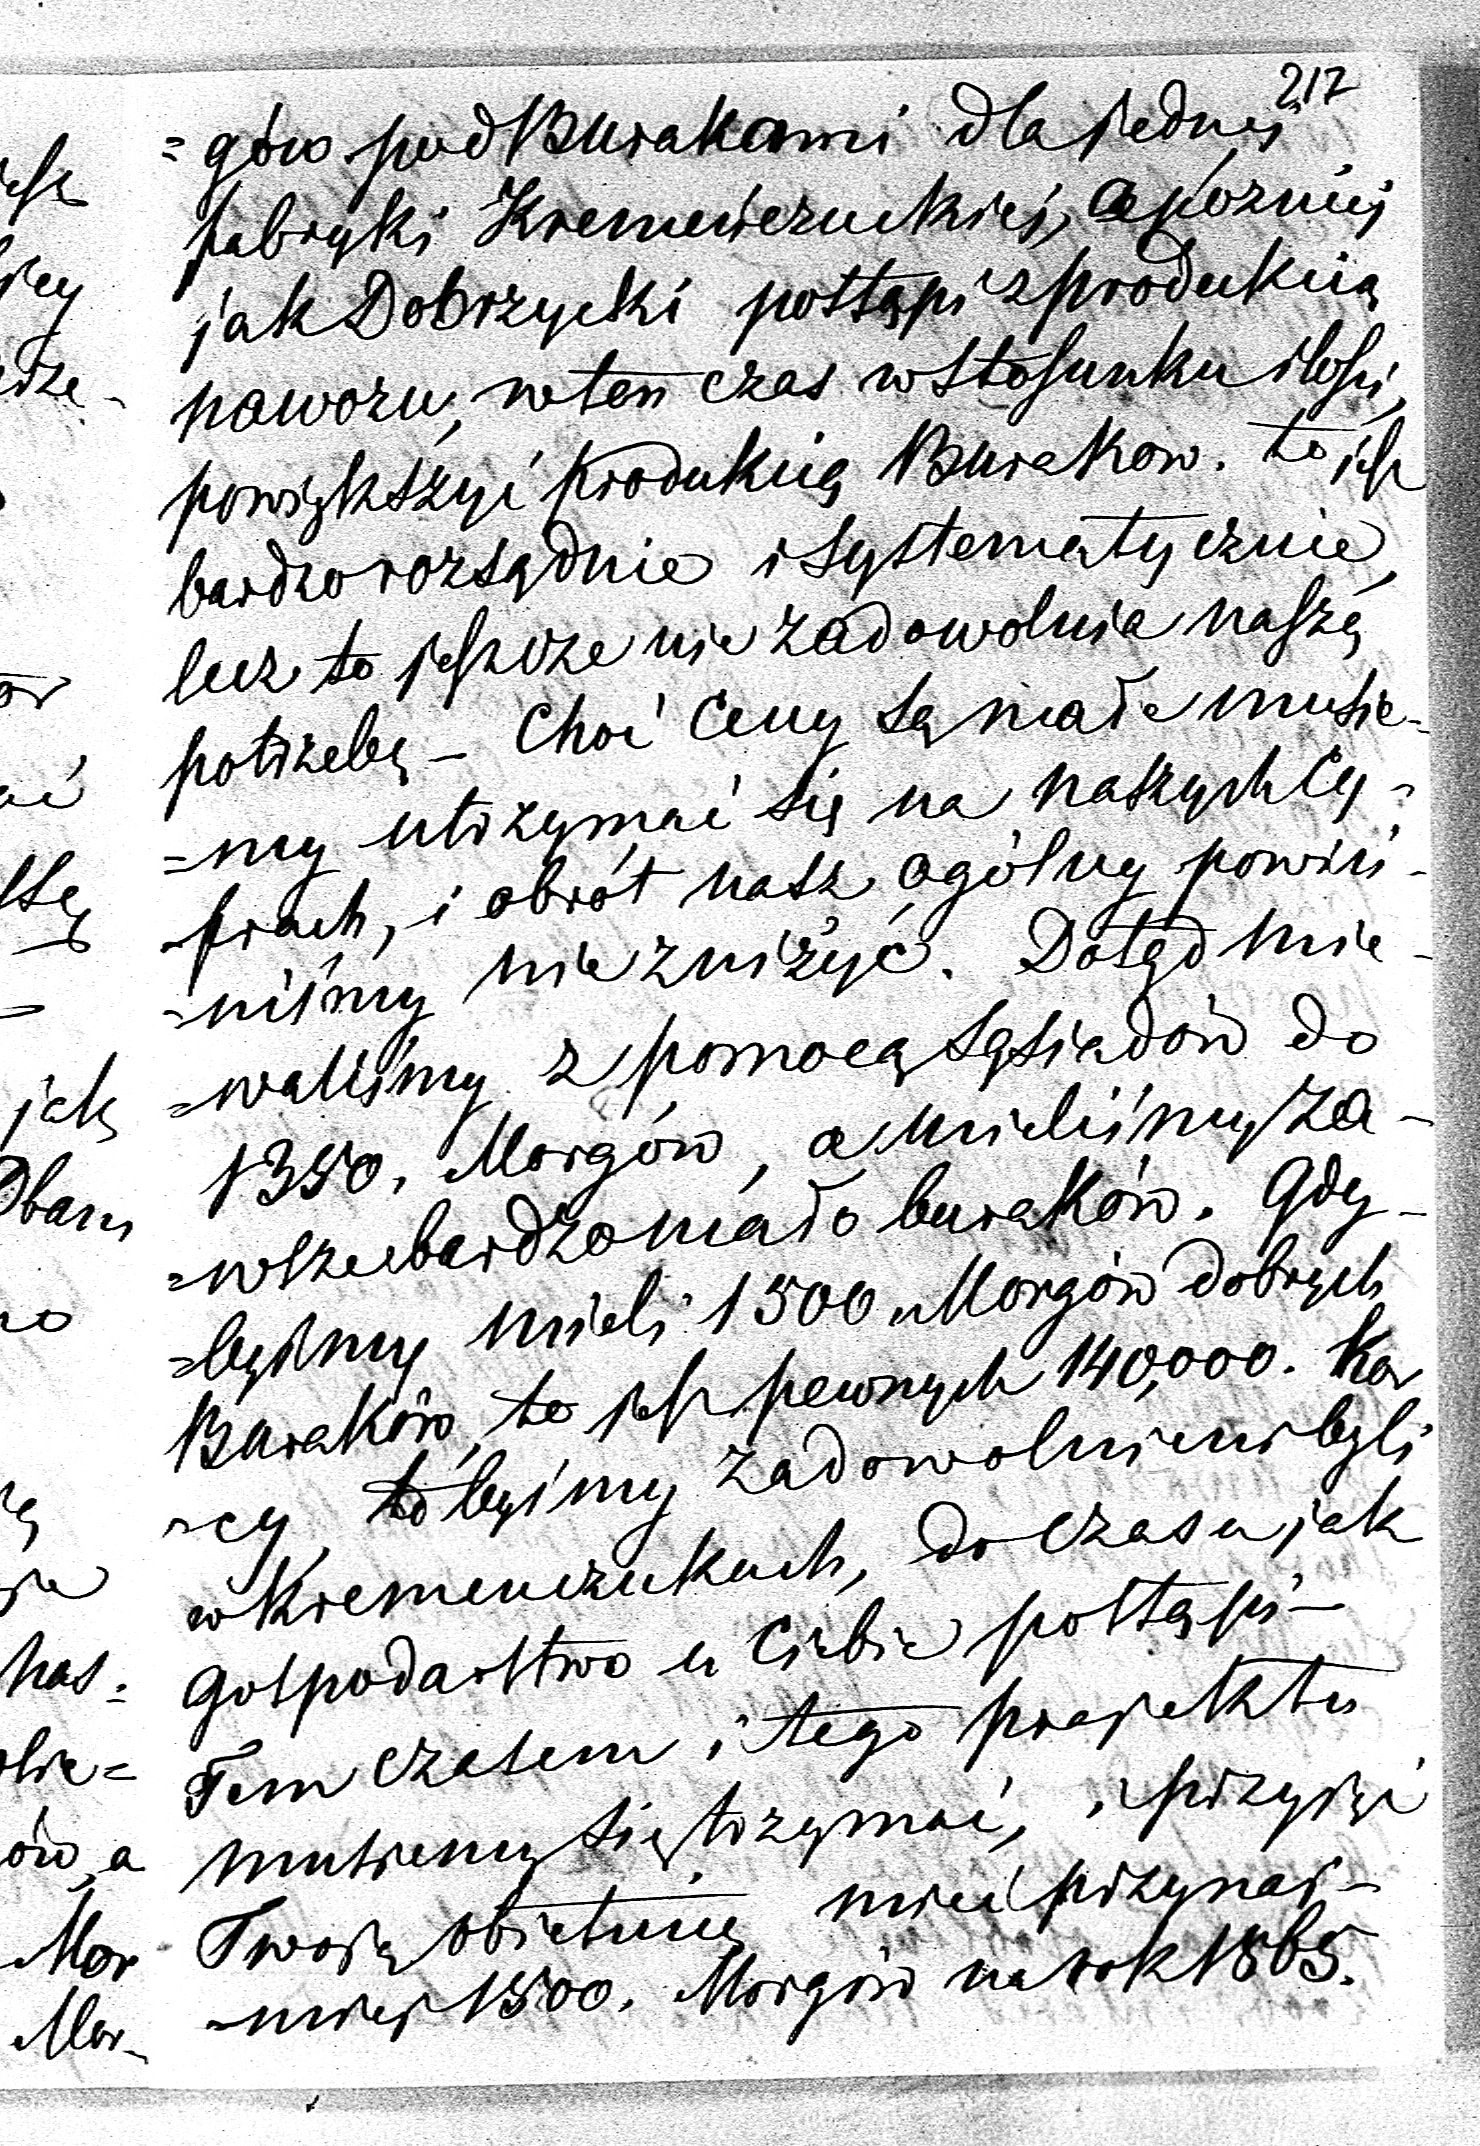 217
=gów pod Burakami dla jednéj
fabryki Kremenczuckiéj, a późniéj
jak Dobrzycki postąpi z produkcią
nawozu, w ten czas w stosunku ilości,
powiększyć produkcią Burakow. to jest
bardzo rozsądnie i systematycznie,
lecz to jeszcze nie zadowolnia naszą
potrzebę – Choć Ceny są małe musie-
=my utrzymać się na naszych Cy-
-frach, i obrót nasz ogólny powin-
-niśmy nie zniżyć. Dotąd mie-
=waliśmy z pomocą sąsiadów do
1350, Morgów, a mieliśmy za-
=wsze bardzo mało buraków. Gdy-
=byśmy mieli 1500 Morgów dobrych
Buraków, to jest pewnych 140,000. Kor
-cy, to byśmy zadowolnieni byli
w Kremenczukach, do czasu jak
gospodarstwo u Ciebie postąpi –
Tem czasem i tego projektu
musiemy się trzymać, i przyjąć
Twoją obietnicę mieć przynaj-
-mniej 1500. Morgów na rok 1865.
jest
Mor
Mor-
jaką
nas-
ów, a